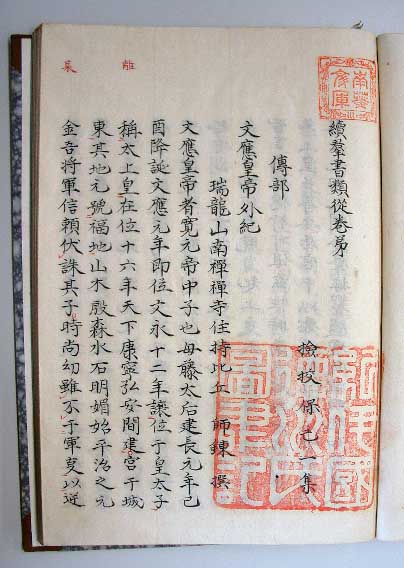 南葵文庫
續羣書類從卷第
檢挍保己一集
傳部
文應皇帝外紀
瑞龍山南禪禪寺住持比丘 師鍊 撰
文應皇帝者寬元帝中子也母藤太后建長元年己
酉降誕文應元年即位文永十二年讓位于皇太子
稱太上皇在位十六年天下康寧弘安間建宮于城
東其地元號福地山木殷森水石明媚始平治之元
金吾將軍信賴伏誅其子時尚幼雖不于軍叓以逆
離